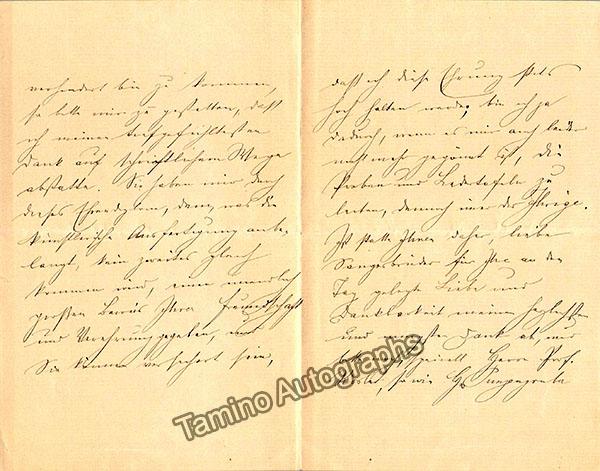 verhindert bin zu kommen,
so bitte mir zu gestatten, daß
ich meinen tiefgefühltesten
Dank auf schriftlichem Wege
abstatte. Sie haben mir durch
dieses Ehrendiplom, dem, was die
künstlerische Ausfertigung anbe-
langt, kein zweites gleich
kommen wird, einen unendlich
großen Beweis Ihrer Freundschaft
und Verehrung gegeben, und
Sie können versichert sein,
daß ich diese Ehrung stets
hoch halten werde, bin ich ja
dadurch, wenn es mir auch leider
nicht mehr gegönnt ist, die
Proben und Liedertafeln zu
leiten, dennoch immer der Ihrige.
Ich statte Ihnen daher, liebe
Sangesbrüder für Ihre an den
Tag gelegte Liebe und
Dankbarkeit meinen herzlichsten
und Dank ab, und
speciell Herrn Prof.
so wie H
Tamino Autographs